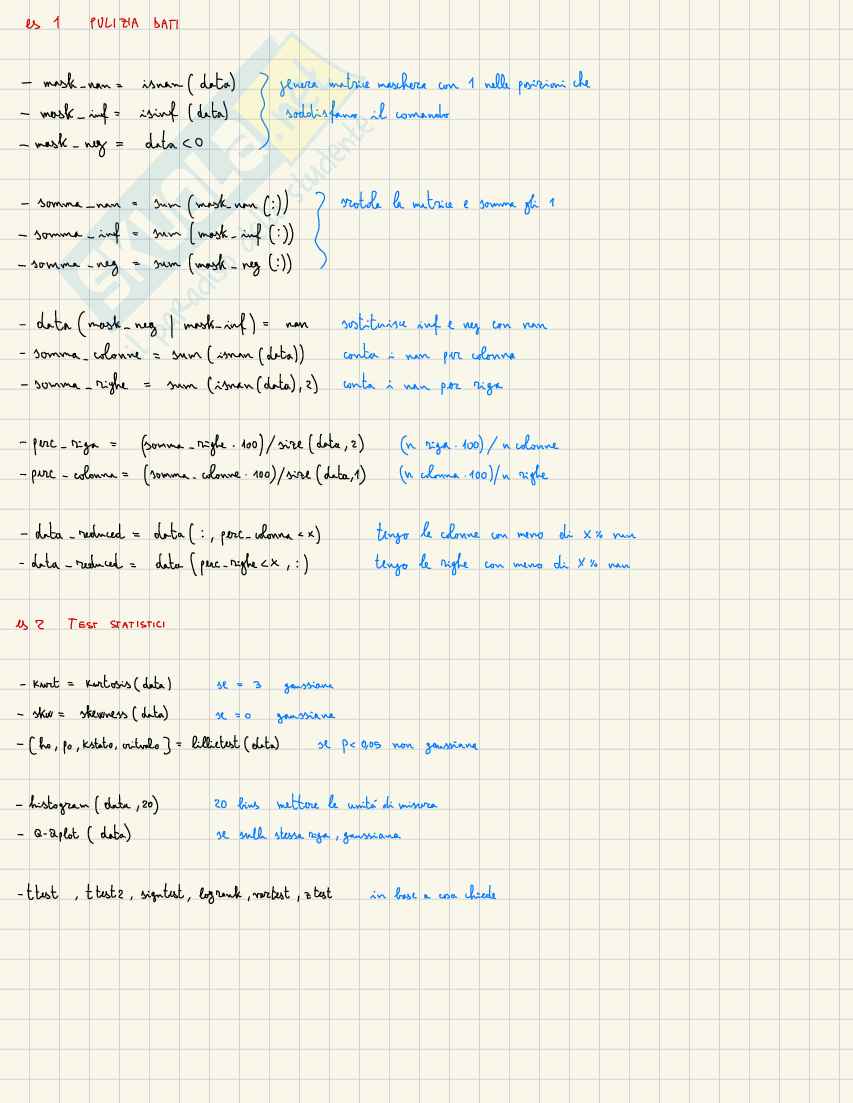 es 1 PULIZIA DATI
- mask_nan = isnan(data) genera matrice maschera con 1 nelle posizioni che
- mask_inf = isinf(data) soddisfano il comando
- mask_neg = data<0
- somma_nan = sum(mask_nan(:)) srotola la matrice e somma gli 1
- somma_inf = sum(mask_inf(:))
- somma_neg = sum(mask_neg(:))
- data(mask_neg | mask_inf) = nan sostituisce inf e neg con nan
- somma_colonne = sum(isnan(data)) conta i nan per colonna
- somma_righe = sum(isnan(data),2) conta i nan per riga
- perc_riga = (somma_righe · 100)/size(data,2) (n riga · 100)/n colonne
- perc_colonna = (somma_colonne · 100)/size(data,1) (n colonna · 100)/n righe
- data_reduced = data(:, perc_colonna<x) tengo le colonne con meno di X% nan
- data_reduced = data(perc_righe<x, :) tengo le righe con meno di X% nan
es 2 TEST STATISTICI
- kurt = kurtosis(data) se = 3 gaussiana
- skw = skewness(data) se = 0 gaussiana
- [h0, p0, kstat0, critval0] = lillietest(data) se p<0,05 non gaussiana
- histogram(data,20) 20 bins mettere le unitá di misura
- Q-Qplot(data) se sulla stessa riga, gaussiana
- ttest, ttest2, signtest, logrank, vartest, ztest in base a cosa chiede
SKUOLA.net
il paradiso dello studente